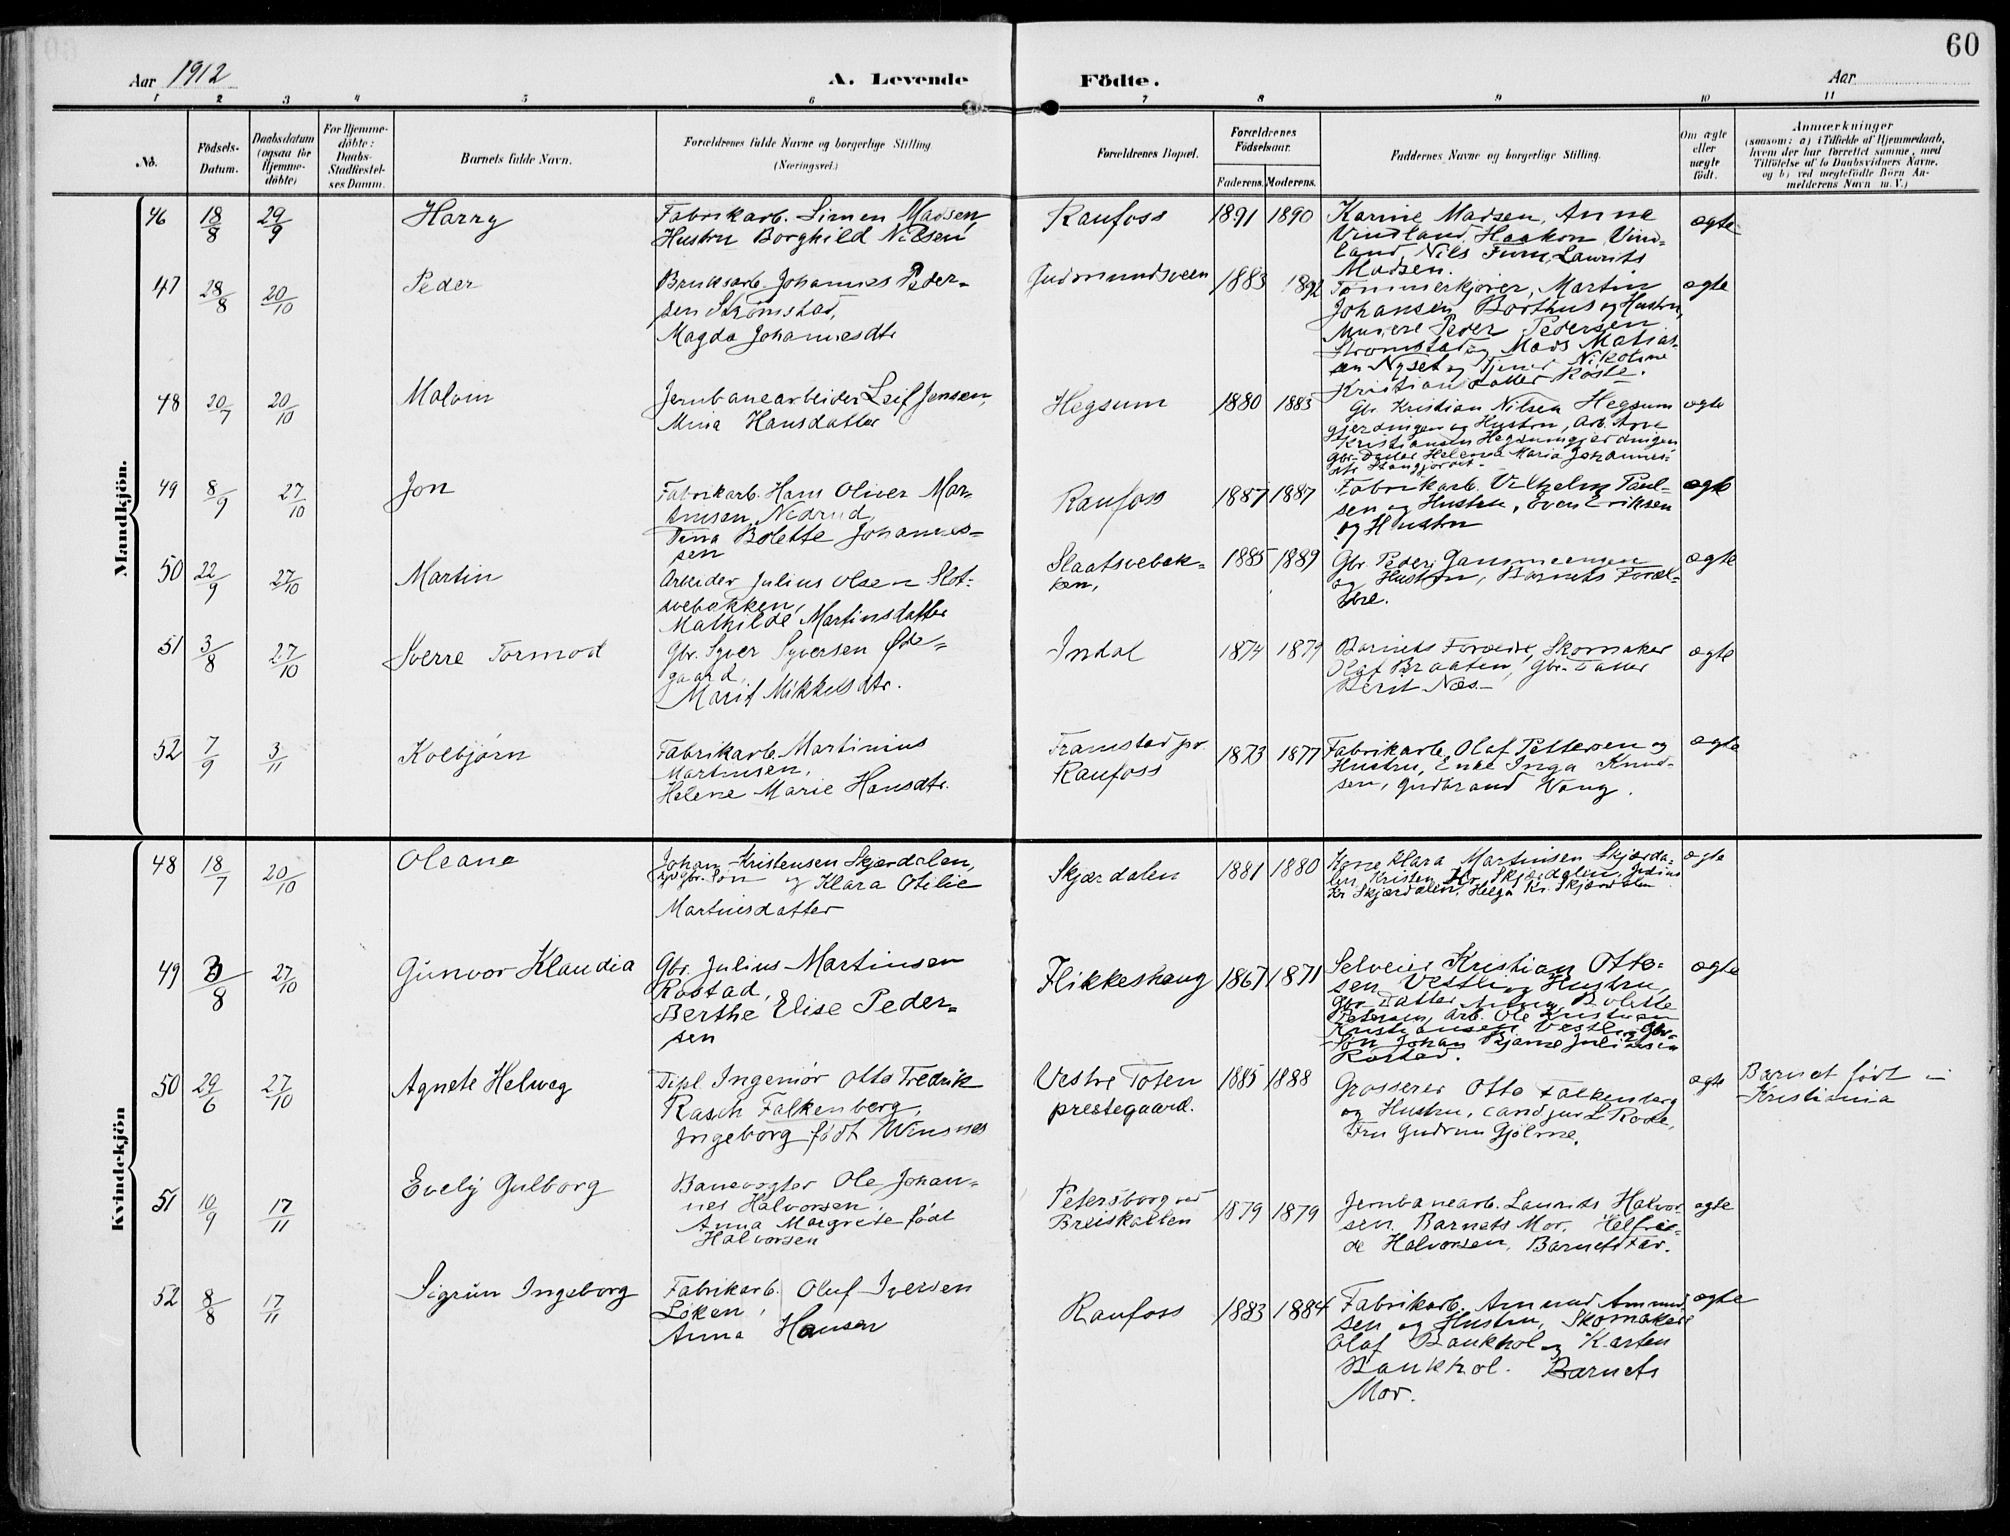 60
Aar 1912
A. Levende Födte.
Aar
1 2 3 4 5 6 7 8 9 10 11
No.
Födsels-
Datum.
Daabsdatum
(ogsaa for
Hjemme-
döbte)
For Hjemme-
döbte:
Daabs-
Stadfæstel-
ses Datum.
Barnets fulde Navn.
Forældrenes fulde Navne og borgerlige Stilling
(Næringsvei.)
Forældrenes Bopæl.
Forældrenes
Födselsaar.
Faderens. Moderens.
Faddernes Navne og borgerlige Stilling.
Om ægte
eller
uægte
födt.
Anmærkninger
(saasom: a) i Tilfælde af Hjemmedaab,
hvem der har forrettet samme, med
Tilföielse af to Daabsvidners Navne,
og b) ved uegtefödte Börn An-
melderens Navn m. V.)
Mandkjön.
46 18/8 29/9 Harry
Fabrikarb. Simen Madsen,
Hustru Borghild Nilsen
Raufoss 1891 1890
Karine Madsen, Anna
Vindland, Haakon Vind-
land, Nils Furu, Laurits
Madsen.
ægte
47 28/8 20/10 Peder
Bruksarb. Johannes Peder-
sen Strømstad,
Magda Johannesdtr
Gudmundsveen 1883 1892
Tømmerkjører, Martin
Johansen Borthus og Hustru,
Peder Pedersen
Strømstad og Mads Matias-
sen Nyset og Nikoline
Kristiansdatter Røste.
ægte
48 20/7 20/10 Malvin
Jernbanearbeider Leif Jensen,
Mina Hansdatter
Hegsum 1880 1885
Gbr. Kristian Nilsen Hegsum
gjerdingen og Hustru, Arb. Arne
Kristiansen Hegsumgjerdingen
Gbr. Datter Helena Maria Johannes-
dtr
ægte
49 8/9 27/10 Jon
Fabrikarb. Hans Oliver Mar-
tinsen Nedrud,
Tina Bolette Johannes-
sen
Raufoss 1887 1887
Fabrikarb. Vilhelm Paul-
sen og Hustru, Even Eriksen
og Hustru
ægte
50 22/9 27/10 Martin
Arbeider Julius Olsen Slot-
svebakken,
Mathilde Martinsdatter
Slaatsvebak-
ken, 1885 1889
Gbr. Peder
og Hustru, Barnets Foræl-
dre.
ægte
51 3/8 27/10 Sverre Tormod
Gbr. Syver Syversen Øde-
gaard,
Marit Mikkelsdtr.
Indal 1874 1879
Barnets Forældre, Skomaker
Olaf Braaten, Gbr. Datter
Berit Næs
ægte
52 7/9 3/11 Kolbjørn
Fabrikarb. Martinius
Martinsen,
Helene Marie Hansdtr.
Framstad pr.
Raufoss 1873 1877
Fabrikarb. Olaf Pettersen og
Hustru, Enke Inga Knud-
sen, Gudbrand Vang.
ægte
Kvindekjön
48 18/7 20/10 Oleane
Johan Kristensen Skjærdalen,
gbr. Søn og Klara Otilie
Martinsdatter
Skjærdalen 1881 1880
Kone Klara Martinsen Skjærda-
len, Kristen Skjærdalen, Julius
Kr. Skjærdalen, Helga Kr. Skjærdalen
ægte
49 /8 27/10 Gunvor Klaudia
Gbr. Julius Martinsen
Rostad,
Berthe Elise Peder-
sen
Flikkeshaug 1867 1871
Selveier Kristian Otto-
sen Vestli og Hustru,
Gbr. Datter Bolette
Petersen, Arb. Ole Kristian
Kristiansen Vestli, Gbr.
Søn Johan Bjarne Juliussen
Rostad.
ægte
50 29/6 27/10 Agnete Helweg
Dipl Ingeniør Otto Fredrik
Rasch Falkenberg,
Ingeborg født Winsnes
Vestre Toten
prestegaard. 1885 1888
Grosserer Otto Falkenberg
og Hustru, cand jur L. Rode,
Fru Gudrun Gjølme.
ægte
Barnet født i
Kristiania
51 10/9 17/11 Evely Gulborg
Banevogter Ole Johan-
nes Halvorsen,
Anna Margrete født
Halvorsen
Petersborg ved
Breiskallen 1879 1879
Jernbanearb. Laurits Halvor-
sen, Barnets Mor, Helfri-
de Halvorsen, Barnets Far.
ægte
52 8/8 17/11 Sigrun Ingeborg
Fabrikarb. Oluf Iversen
Løken,
Anna Hansen
Raufoss 1883 1884
Fabrikarb. Amund Amund-
sen og Hustru, Skomaker
Olaf Baukhol og Karten
Baukhol. Barnets
Mor.
ægte